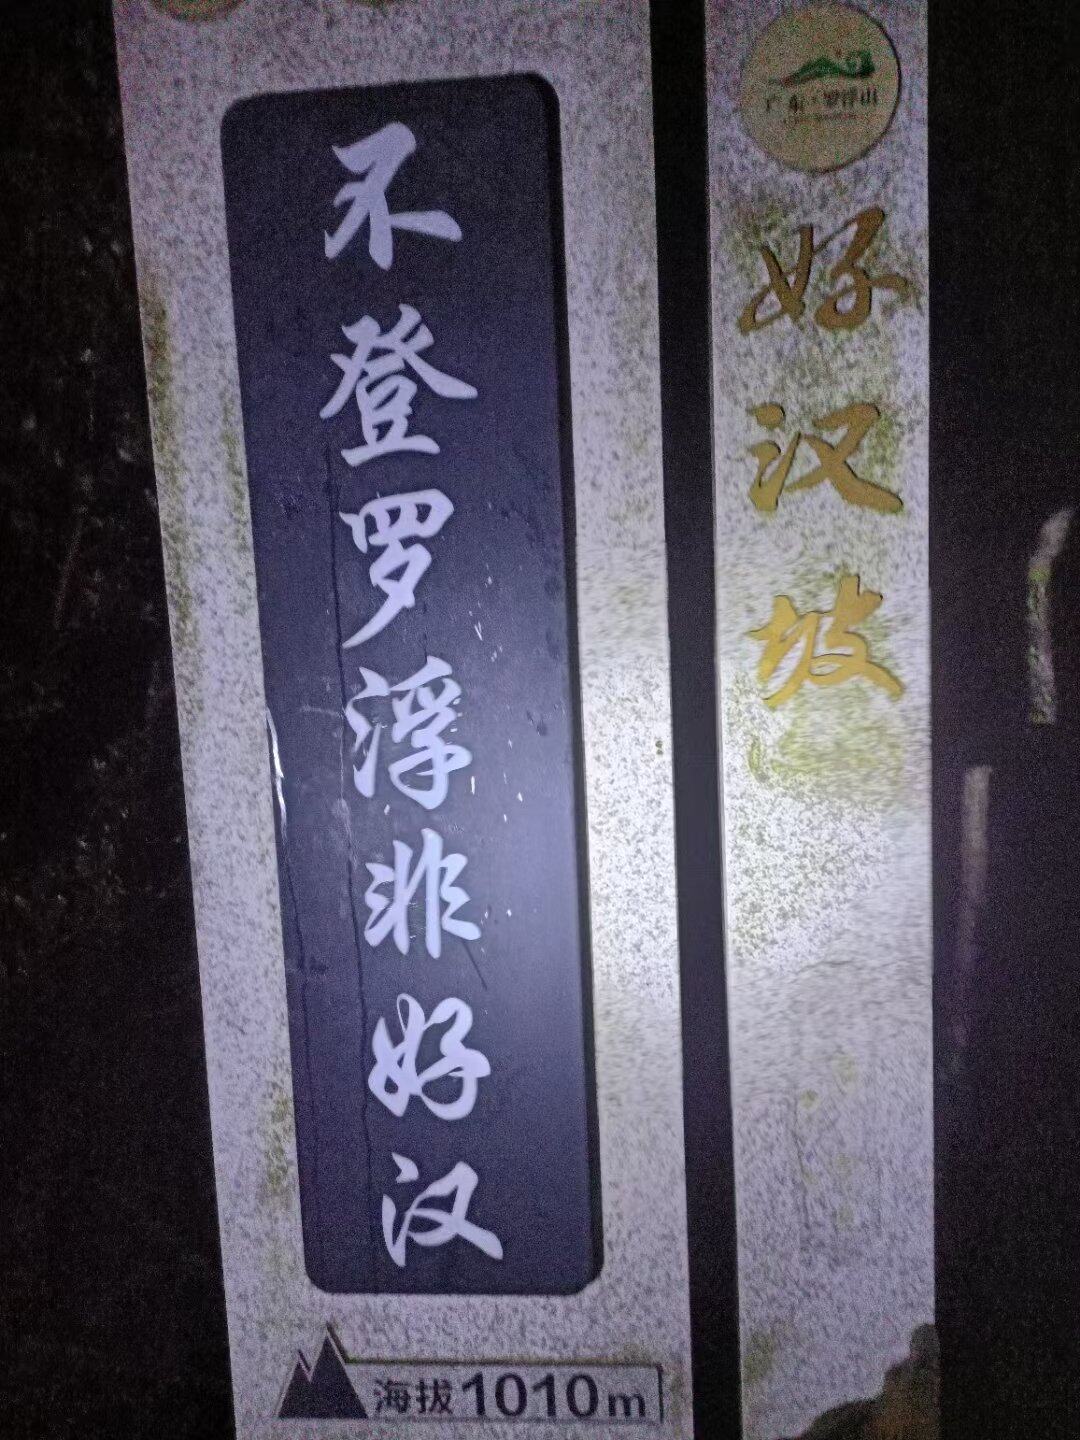 不登罗浮非好汉
海拔1010m
广东·罗浮山
好汉坡